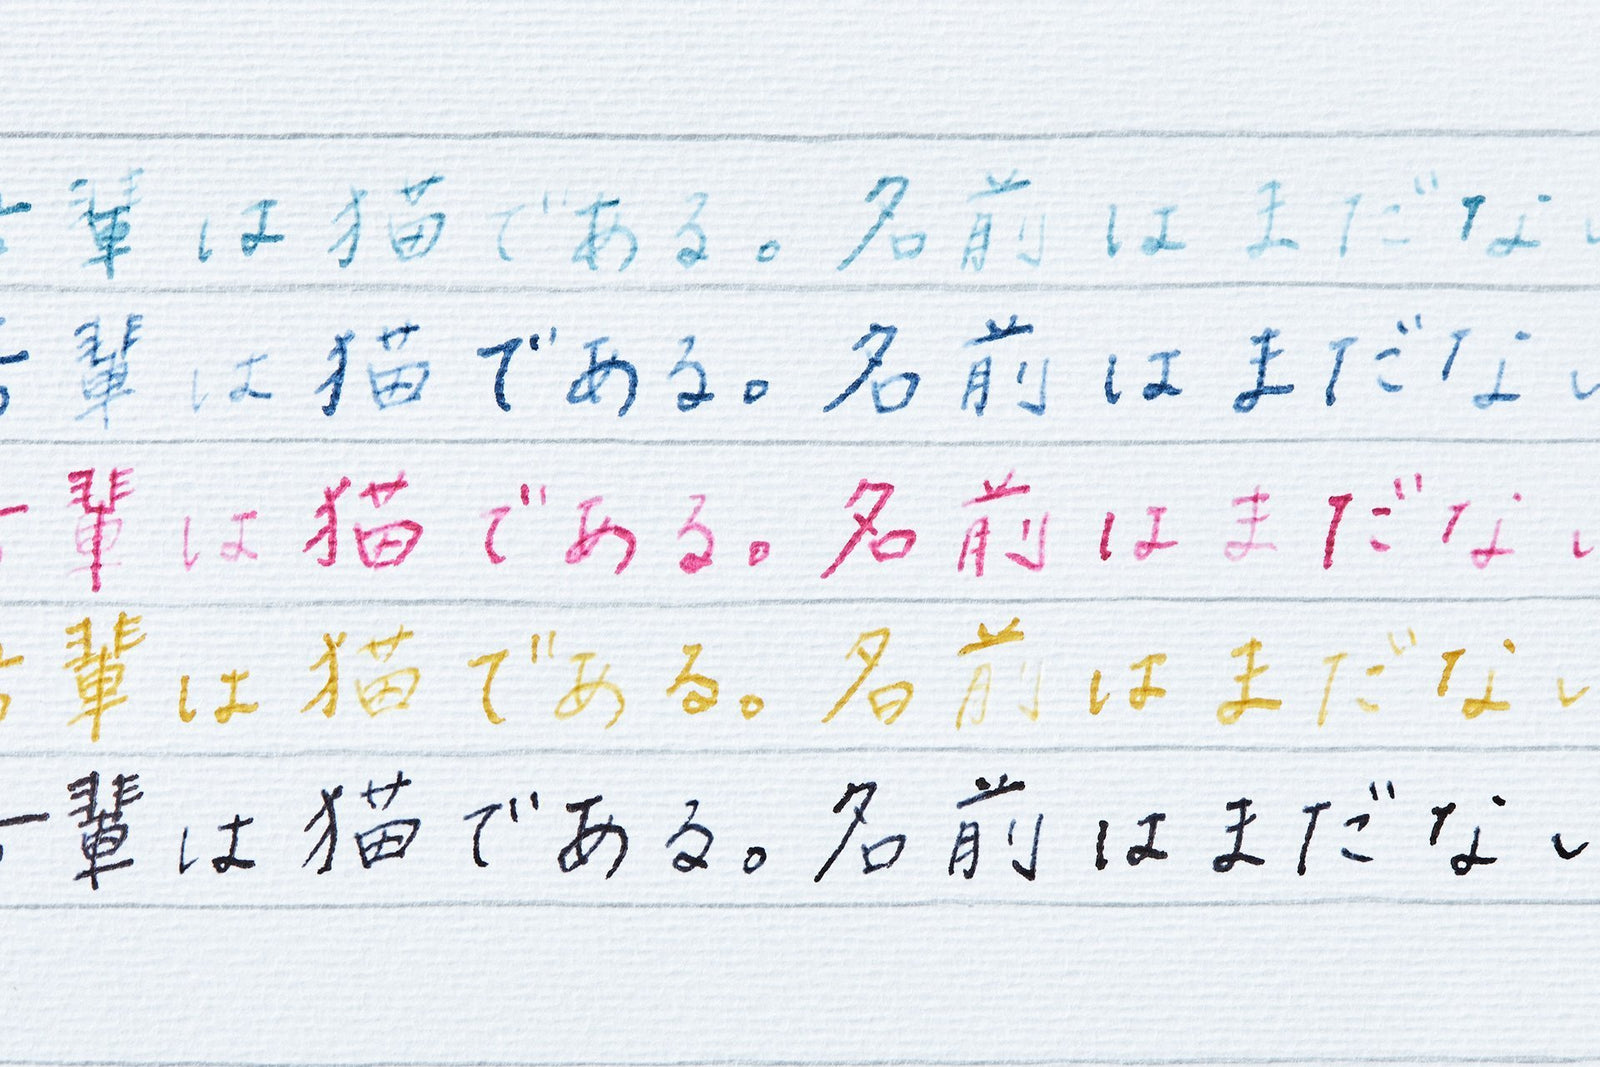 吾輩は猫である。名前はまだない
吾輩は猫である。名前はまだない
吾輩は猫である。名前はまだない
吾輩は猫である。名前はまだない
吾輩は猫である。名前はまだない